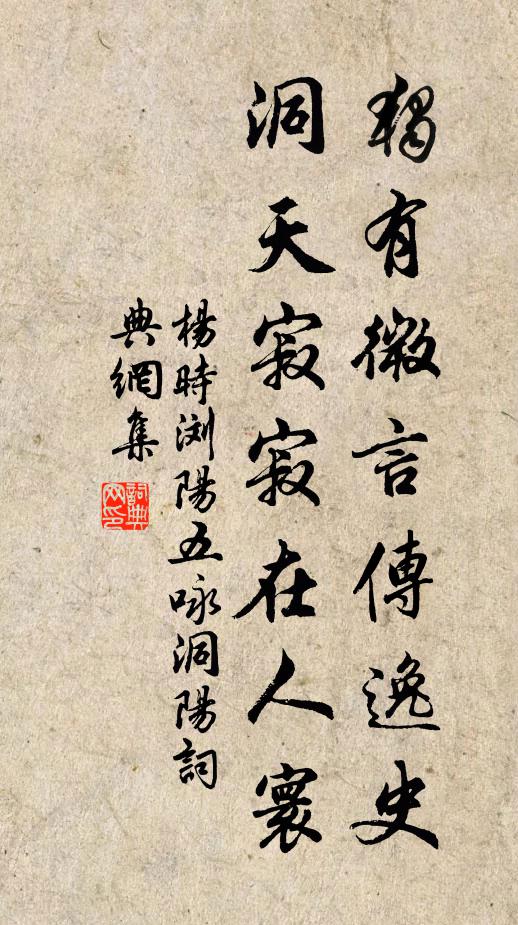 獨有微言傳逸史
洞天寂寂在人寰
楊時瀏陽五咏洞陽詞
典網集
詞典网印